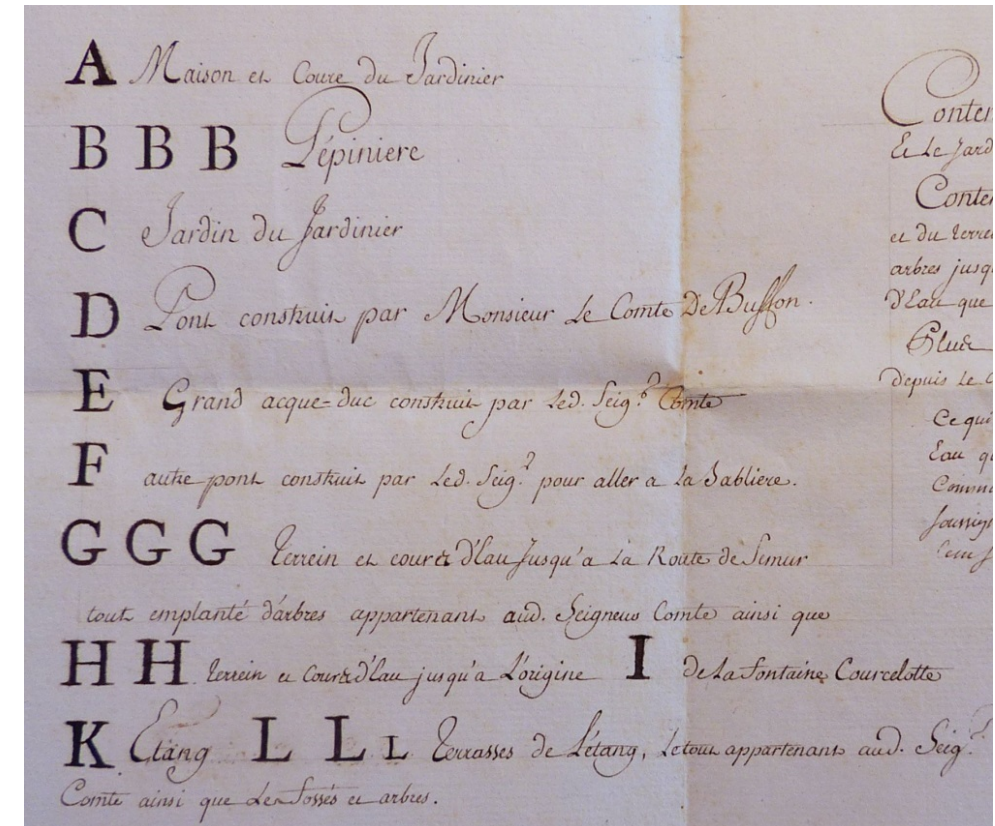 A Maison et Coure du Jardinier
B B B Pépiniere
C Jardin du Jardinier
D Pont construit par Monsieur Le Comte De Buffon.
E Grand acque=duc construit par Led. Seig.r Comte
F autre pont construit par Led. Seig.r pour aller a La Sabliere.
G G G terrein et cours d'Eau Jusqu'a La Route de Semur
tout emplanté d'arbres appartenant aud. Seigneur Comte ainsi que
H H terrein et Cours d'Eau jusqu'a L'origine I de La fontaine Courcelotte
K Etang L L L terrasses de L'étang, Le tout appartenant aud. Seig.r
Comte ainsi que Les fossés et arbres.
Et Le Jard
et du terre
arbres jusq
d'Eau que
Plus
depuis Le
Ce qui
Eau